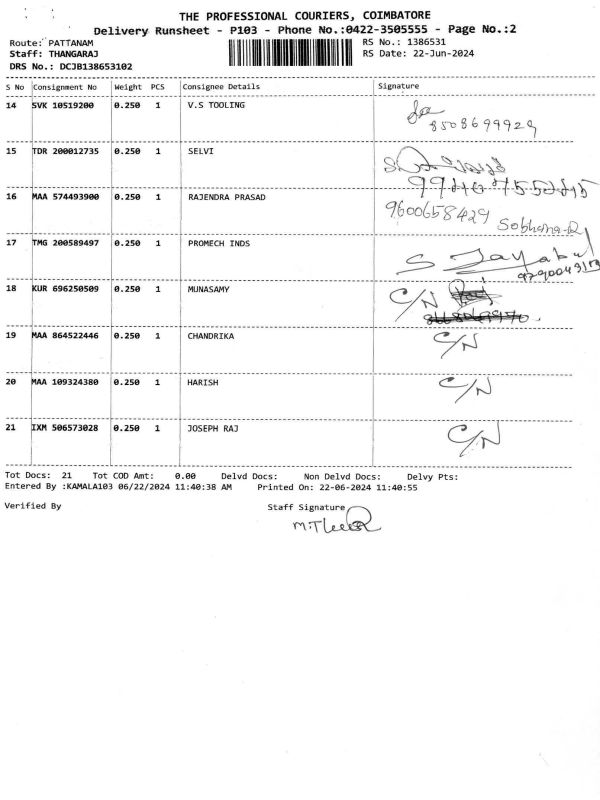 THE PROFESSIONAL COURIERS, COIMBATORE
Delivery Runsheet - P103 - Phone No.:0422-3505555 - Page No.:2
Route: PATTANAM RS No.: 1386531
Staff: THANGARAJ RS Date: 22-Jun-2024
DRS No.: DCJB138653102
S No Consignment No Weight PCS Consignee Details Signature
14 SVK 10519200 0.250 1 V.S TOOLING
8508699929
15 TDR 200012735 0.250 1 SELVI
16 MAA 574493900 0.250 1 RAJENDRA PRASAD 9600658429 Sobhana.R
17 TMG 200589497 0.250 1 PROMECH INDS S Jayabal
18 KUR 696250509 0.250 1 MUNASAMY C/N
19 MAA 864522446 0.250 1 CHANDRIKA C/N
20 MAA 109324380 0.250 1 HARISH C/N
21 IXM 506573028 0.250 1 JOSEPH RAJ C/N
Tot Docs: 21 Tot COD Amt: 0.00 Delvd Docs: Non Delvd Docs: Delvy Pts:
Entered By :KAMALA103 06/22/2024 11:40:38 AM Printed On: 22-06-2024 11:40:55
Verified By Staff Signature